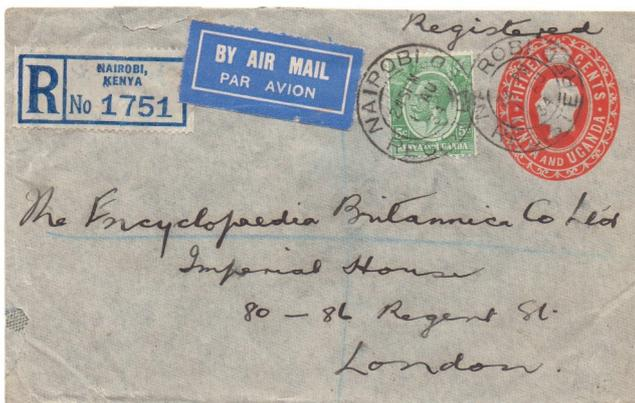 Registered
R
NAIROBI,
KENYA
No 1751
BY AIR MAIL
PAR AVION
NAIROBI
AU
5c 5c
KENYA AND UGANDA
FIFTEEN CENTS
KENYA AND UGANDA
The Encyclopaedia Britannica Co Ltd
Imperial House
80 - 86 Regent St.
London.